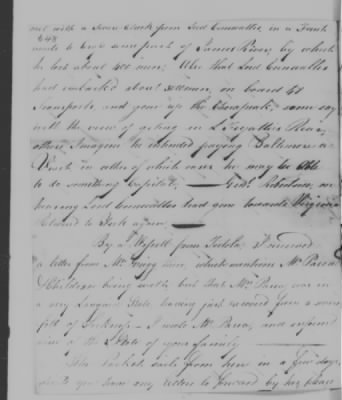 met with a severe check from Lord Cornwallis, in a
648
made to cross some part of James River, by which
he lost about 400 men; Also that Lord Cornwallis
had embarked about 3000 men, on board 45
Transports and gone up the Chesapeak, some say
with the view of getting in Loyalists Rear,
others, I imagine he intended paying Baltimore a
Visit in either of which cases he may be able
to do something Capital, Genl. Robertson, on
hearing Lord Cornwallis had gone towards Virginia
returned to York again
By a Vessell from Tortola, I received
a letter from Mr. which mentions Mr.
& Children being well but that Mr. was in
a very Languid State having just recovered from a severe
fitt of Sickness - I wrote Mr. and informed
him of the State of your family
The Packet sails from here in a few days
should you have any letters to forward by her please